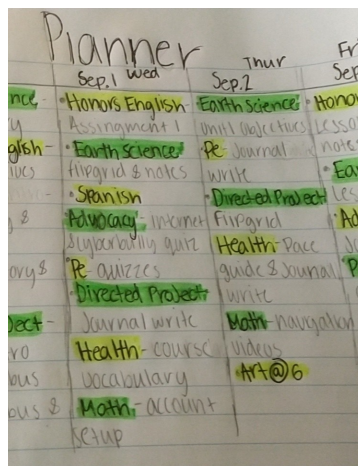 Planner
Sep.1 Wed
Honors English-
Assingment 1
Earth Science-
flipgrid & notes
Spanish
Advocacy- Internet
& cyberbully quiz
Pe- quizzes
Directed Project-
Journal write
Health- course
vocabulary
Math- account
setup
Thur
Sep.2
Earth Science-
unit 1 objectives
Pe- Journal
write
Directed Project-
Flipgrid
Health- Pace
guide & Journal
write
Math- navigation
videos
Art@6
Fri
Sep
Honor
Lesso
note
Ea
Les